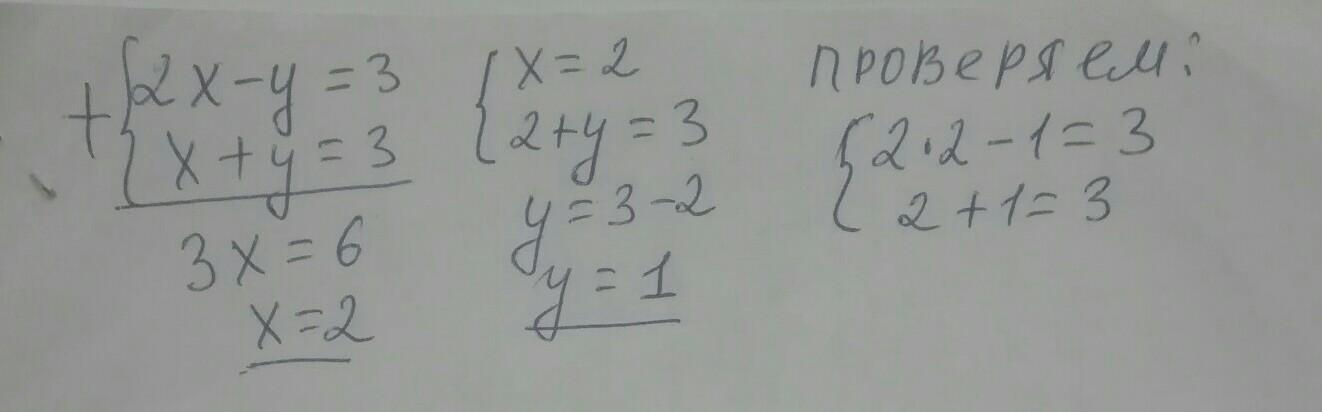 +{2x-y=3
x+y=3
3x=6
x=2
{x=2
2+y=3
y=3-2
y=1
проверяем:
{2·2-1=3
2+1=3